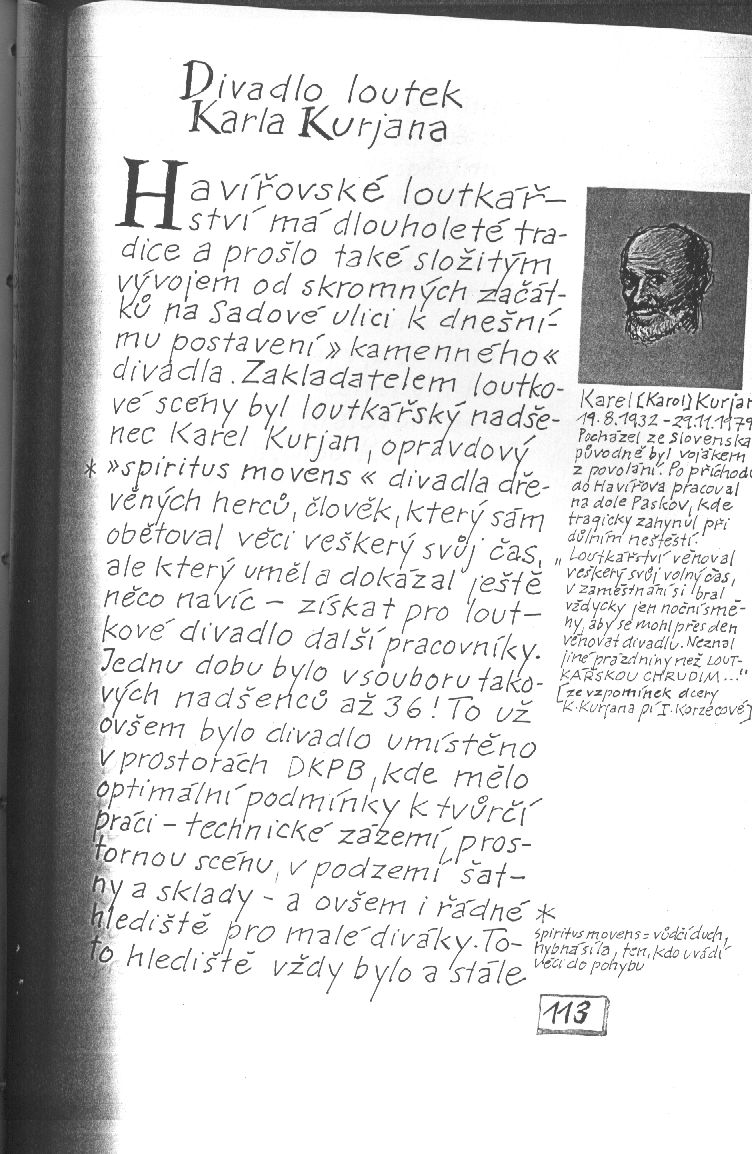 Divadlo loutek
Karla Kurjana
Havířovské loutkář-
ství má dlouholeté tra-
dice a prošlo také složitým
vývojem od skromných začát-
ků na Sadové ulici k dnešní-
mu postavení »kamenného«
divadla. Zakladatelem loutko-
vé scény byl loutkářský nadše-
nec Karel Kurjan, opravdový
* »spiritus movens« divadla dře-
věných herců, člověk, který sám
obětoval věci veškerý svůj čas,
ale který uměl a dokázal ještě
něco navíc – získat pro lout-
kové divadlo další pracovníky.
Jednu dobu bylo v souboru tako-
vých nadšenců až 36! To už
ovšem bylo divadlo umístěno
v prostorách DKPB, kde mělo
optimální podmínky k tvůrčí
práci – technické zázemí, pros-
tornou scénu, v podzemí šat-
ny a sklady – a ovšem i řádné
hlediště pro malé diváky. To-
to hlediště vždy bylo a stále
Karel [Karol] Kurjan
19.8.1932 – 29.11.1979
Pocházel ze Slovenska
původně byl vojákem
z povolání. Po příchodu
do Havířova pracoval
na dole Paskov, kde
tragicky zahynul při
důlním neštěstí.
„Loutkářství věnoval
veškerý svůj volný čas,
v zaměstnání si bral
vždycky jen noční smě-
ny, aby se mohl přes den
věnovat divadlu. Neznal
jiné prázdniny než LOUT-
KÁŘSKOU CHRUDIM..."
[ze vzpomínek dcery
K. Kurjana pí I. Korzecové]
*
spiritus movens = vůdčí duch,
hybná síla, ten, kdo uvádí
věci do pohybu
113